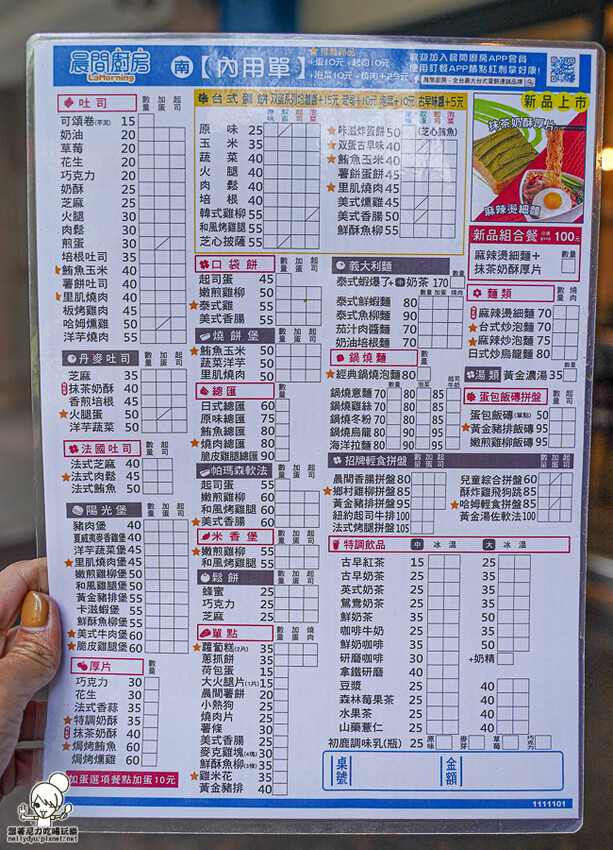 晨間廚房
LaMorning
南【內用單】
+蛋10元、+起司10元
+泡菜10元、+燒肉+25元
歡迎加入晨間廚房APP會員
使用訂餐APP請點紅利拿好康!
晨間廚房-全台最大台式蛋餅連鎖品牌
吐司 數量 加蛋 起司
可頌卷(芋泥) 15
奶油 20
草莓 20
花生 20
巧克力 20
奶酥 25
芝麻 25
火腿 30
肉鬆 30
煎蛋 30
培根吐司 35
★鮪魚玉米 40
薯餅吐司 40
★里肌燒肉 40
板烤雞肉 45
哈姆燻雞 50
洋芋燒肉 55
丹麥吐司 數量 加蛋 起司
芝麻 35
抹茶奶酥 40
香煎培根 45
★火腿蛋 50
洋芋蔬菜 50
法國吐司 數量 加蛋 起司
法式芝麻 40
★法式肉鬆 45
法式鮪魚 50
陽光堡 數量 加蛋 起司
豬肉堡 40
夏威夷麥香雞 40
洋芋蔬菜堡 45
★里肌燒肉堡 45
嫩煎雞柳堡 50
和風雞腿堡 50
黃金豬排堡 55
卡滋蝦堡 55
鮮酥魚柳堡 55
★美式牛肉堡 60
★脆皮雞腿堡 60
厚片 數量
巧克力 30
花生 30
法式香蒜 35
★特調奶酥 35
抹茶奶酥 40
★焗烤鮪魚 60
焗烤燻雞 60
加蛋選項餐點加蛋10元
原味 25
玉米 35
蔬菜 40
火腿 40
肉鬆 40
培根 40
韓式雞柳 55
和風雞柳 55
芝心披薩 55
★卡滋炸蛋餅 50 (芝心鮪魚)
★双蛋古早味 40
★鮪魚玉米 40
薯餅蛋餅 45
★里肌燒肉 45
美式燻雞 45
美式香腸 50
鮮酥魚柳 55
口袋餅 數量 加蛋 起司
起司蛋 45
嫩煎雞柳 50
★泰式雞 55
美式香腸 55
燒餅堡 數量 加蛋 起司
★鮪魚玉米 50
蔬菜洋芋 50
里肌燒肉 50
總匯 數量
日式總匯 60
原味總匯 75
鮪魚總匯 80
★燒肉總匯 80
脆皮雞腿總匯 90
帕瑪森軟法 數量 加蛋 起司
起司蛋 55
嫩煎雞柳 60
和風雞腿 60
★美式香腸 60
米香堡 數量 加蛋 起司
★嫩煎雞柳 55
和風雞腿 55
鬆餅 數量
蜂蜜 25
巧克力 25
芝麻 25
單點 數量 加蛋 燒肉
★蘿蔔糕(2片) 35
蔥抓餅 35
荷包蛋 15
大火腿片(1片) 15
晨間薯餅 20
小熱狗 25
燒肉片 25
薯條 30
美式香腸 25
麥克雞塊(4塊) 30
鮮酥魚柳(3條) 35
★雞米花 35
黃金豬排 40
義大利麵 數量
泰式蝦爆了+中奶茶 170
數量 加蛋 燒肉
泰式鮮蝦麵 80
泰式魚柳麵 90
茄汁肉醬麵 70
奶油培根麵 70
鍋燒麵 數量
★經典鍋燒泡麵 80
鍋燒意麵 70 80 85
鍋燒雞絲 70 80 85
鍋燒冬粉 70 80 85
鍋燒烏龍 80 90 95
海洋拉麵 80 90 95
招牌輕食拼盤 數量 加蛋 起司
晨間香腸拼盤 80
★鄉村雞柳拼盤 85
黃金豬排拼盤 95
紐約起司牛排 100
法式烤腿拼盤 105
兒童綜合拼盤 60
酥炸雞飛狗跳 85
★哈姆輕食拼盤 85
黃金湯佐軟法 100
特調飲品 中 冰 溫 大 冰 溫
古早紅茶 15 25
古早奶茶 25 35
英式奶茶 25 35
鴛鴦奶茶 25 35
鮮奶茶 35 50
咖啡牛奶 25 35
鮮奶咖啡 35 50
研磨咖啡 30 +奶精
拿鐵研磨 40
豆漿 25 40
森林莓果茶 25 40
水果茶 25 40
山藥薏仁 25 40
初鹿調味乳(瓶) 25 原味 麥芽 草莓 巧克力
桌號 金額
新品上市
抹茶奶酥厚片
麻辣燙細麵
新品組合餐 100元
麻辣燙細麵+
抹茶奶酥厚片
數量
麵類 數量 燒肉
麻辣燙細麵 70
★台式炒泡麵 70
★麻辣炒泡麵 75
日式炒烏龍麵 80
湯類 黃金濃湯 35
蛋包飯磚拼盤
蛋包飯磚(單點) 50
★黃金豬排飯磚 95
嫩煎雞柳飯磚 95
1111101
跟著尼力吃喝玩樂
nellydyu.pixnet.net